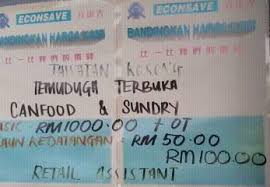 ECONSAVE ECONSAVE
BANDINGKAN HARGA KAMI BANDINGKAN HARGA KAMI
JAWATAN KOSONG
TEMUDUGA TERBUKA
CANFOOD & SUNDRY
BASIC : RM1000.00 + OT
KEDATANGAN : RM 50.00
RM100.00
RETAIL ASSISTANT